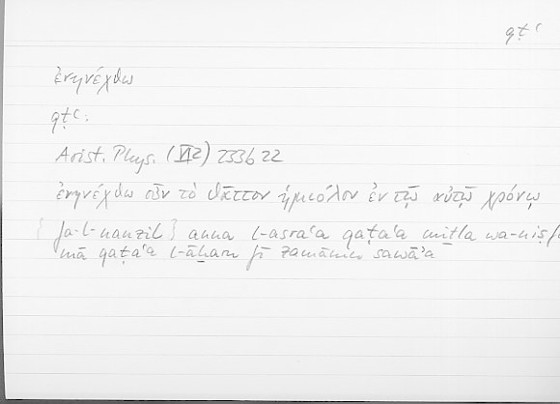 qṭʿ
ἐνηνέχθω
qṭʿ:
Arist. Phys. (VI 2) 233b22
ἐνηνέχθω οὖν τὸ θᾶττον ἡμιόλιον ἐν τῷ αὐτῷ χρόνῳ
{fa-l-nanzil} anna l-asraʿa qaṭaʿa miṯla wa-niṣfa
mā qaṭaʿa l-āḫaru fī zamānin sawāʾa